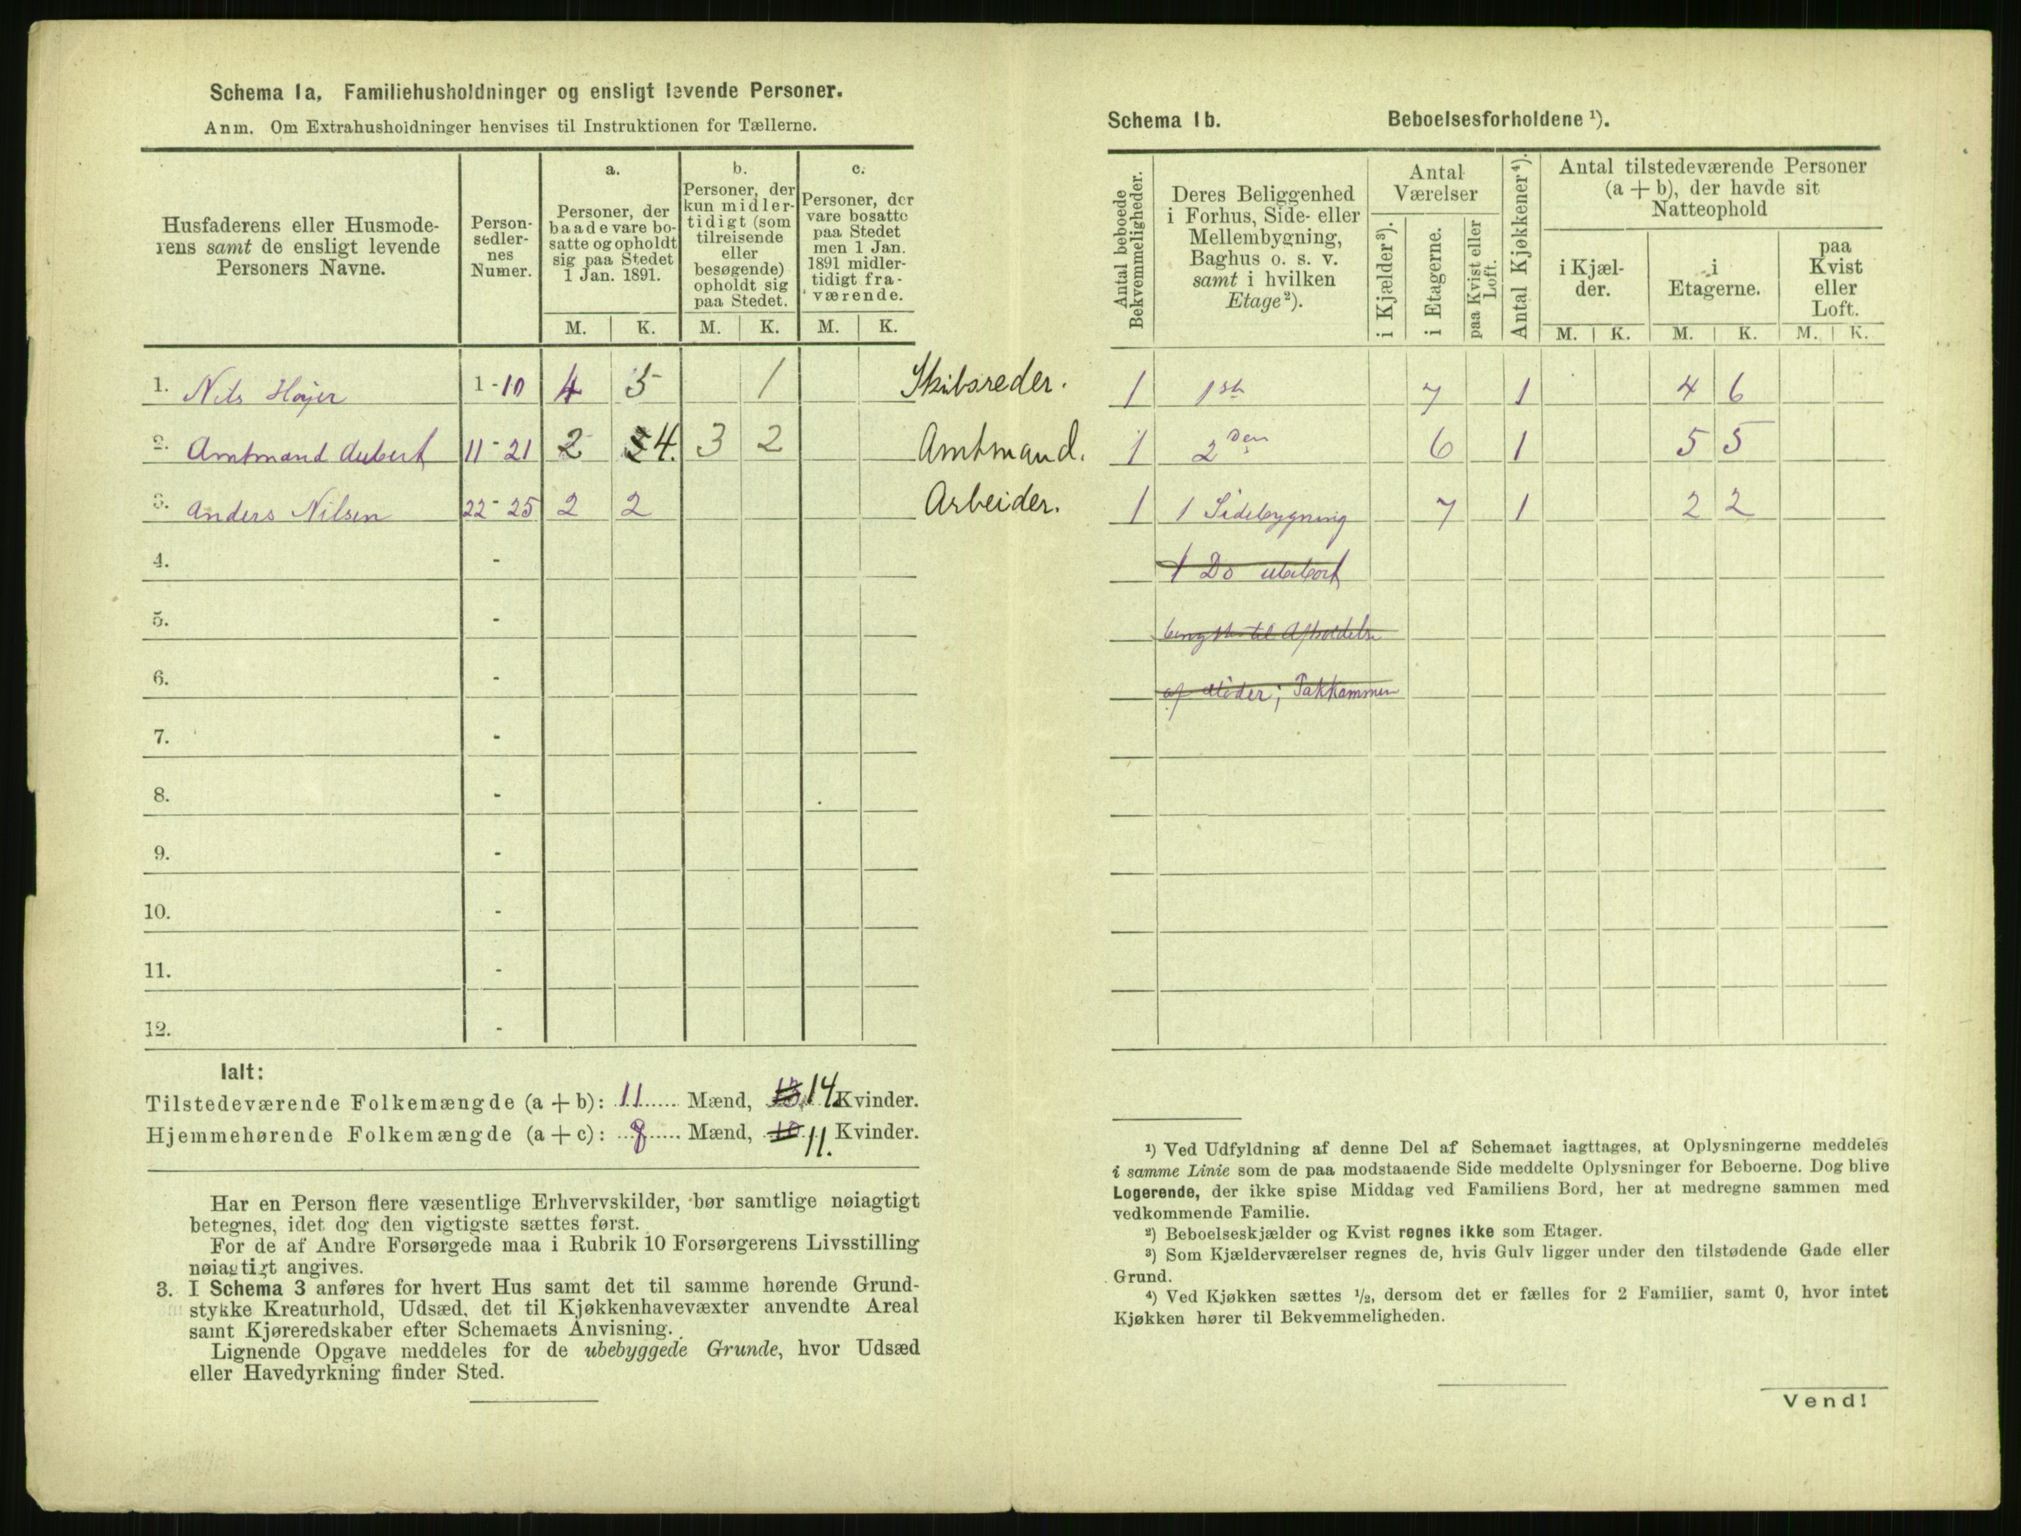 Schema 1a. Familiehusholdninger og ensligt levende Personer.
Anm. Om Extrahusholdninger henvises til Instruktionen for Tællerne.
Husfaderens eller Husmode-
rens samt de ensligt levende
Personers Navne.
Person-
sedler-
nes
Numer.
a.
Personer, der
baade vare bo-
satte og opholdt
sig paa Stedet
1 Jan. 1891.
b.
Personer, der
kun midler-
tidigt (som
tilreisende
eller
besøgende)
opholdt sig
paa Stedet.
c.
Personer, der
vare bosatte
paa Stedet
men 1 Jan.
1891 midler-
tidigt fra-
værende.
M. K. M. K. M. K.
1. Nils Høyer 1-10 4 5 1 Skibsreder.
2. Amtmand Aubert 11-21 2 4. 3 2 Amtmand.
3. Anders Nilsen 22-25 2 2 Arbeider.
4. -
5. -
6. -
7. -
8. -
9. -
10. -
11. -
12. -
Ialt:
Tilstedeværende Folkemængde (a + b): 11 Mænd, 13 14 Kvinder.
Hjemmehørende Folkemængde (a + c): 8 Mænd, 10 11. Kvinder.
Har en Person flere væsentlige Erhvervskilder, bør samtlige nøiagtigt
betegnes, idet dog den vigtigste sættes først.
For de af Andre Forsørgede maa i Rubrik 10 Forsørgerens Livsstilling
nøiagtigt angives.
3. I Schema 3 anføres for hvert Hus samt det til samme hørende Grund-
stykke Kreaturhold, Udsæd, det til Kjøkkenhavevæxter anvendte Areal
samt Kjøreredskaber efter Schemaets Anvisning.
Lignende Opgave meddeles for de ubebyggede Grunde, hvor Udsæd
eller Havedyrkning finder Sted.
Schema 1b. Beboelsesforholdene ¹).
Antal beboede
Bekvemmeligheder.
Deres Beliggenhed
i Forhus, Side- eller
Mellembygning,
Baghus o. s. v.
samt i hvilken
Etage ²).
Antal
Værelser
i Kjælder ³).
i Etagerne.
paa Kvist eller
Loft.
Antal Kjøkkener ⁴).
Antal tilstedeværende Personer
(a + b), der havde sit
Natteophold
i Kjæl-
der.
i
Etagerne.
paa
Kvist
eller
Loft.
M. K. M. K. M. K.
1 1ste 7 1 4 6
1 2den 6 1 5 5
1 1 Sidebygning 7 1 2 2
1 Do ubeboet
til Afholdelse
af Møder; Pakkammer
¹) Ved Udfyldning af denne Del af Schemaet iagttages, at Oplysningerne meddeles
i samme Linie som de paa modstaaende Side meddelte Oplysninger for Beboerne. Dog blive
Logerende, der ikke spise Middag ved Familiens Bord, her at medregne sammen med
vedkommende Familie.
²) Beboelseskjælder og Kvist regnes ikke som Etager.
³) Som Kjælderværelser regnes de, hvis Gulv ligger under den tilstødende Gade eller
Grund.
⁴) Ved Kjøkken sættes ½, dersom det er fælles for 2 Familier, samt 0, hvor intet
Kjøkken hører til Bekvemmeligheden.
Vend!